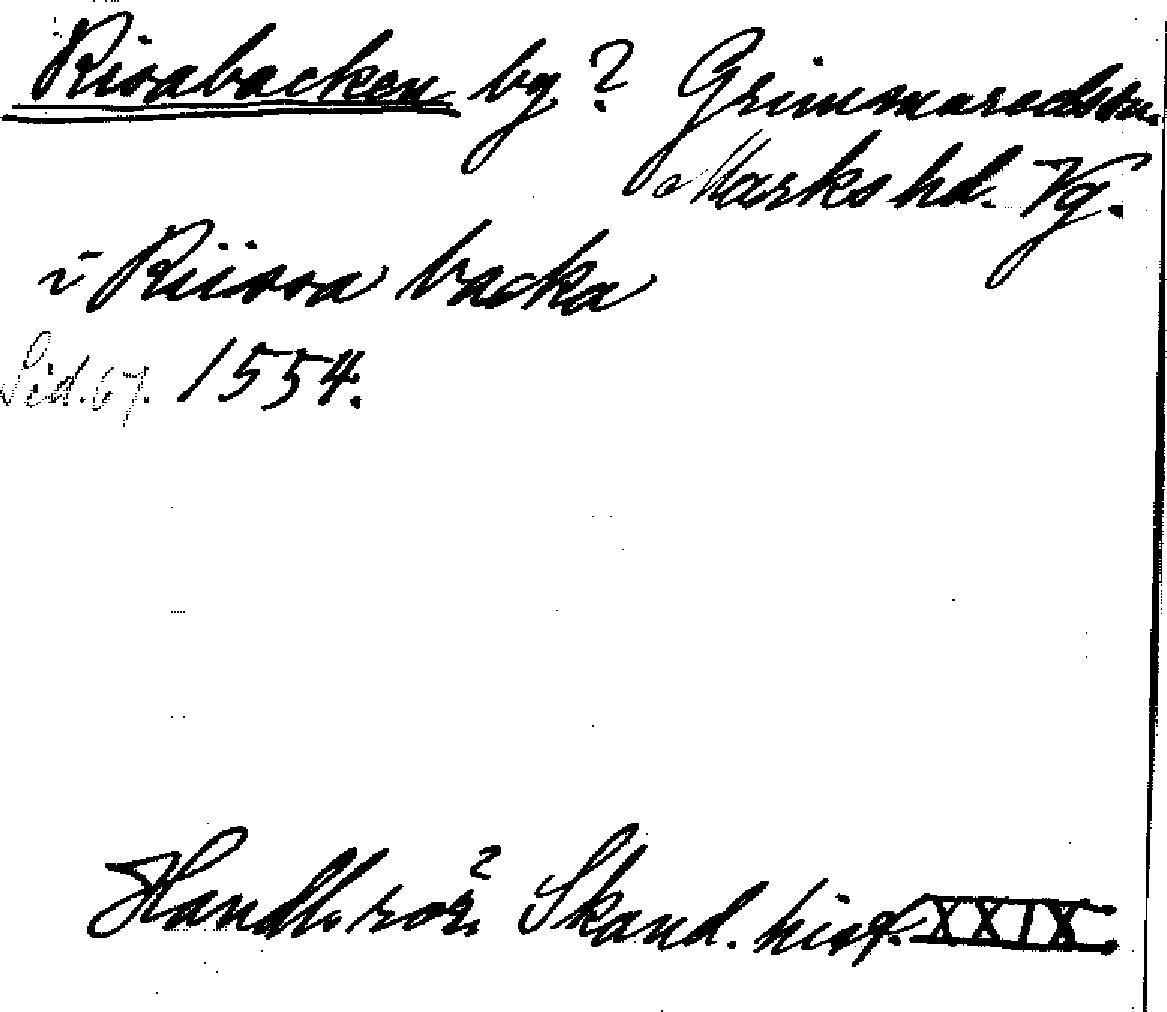 Risabacken by? Grimmaredssn.
Marks hd. Vg.
i Riissa backa
Sid. 67. 1554.
Handl. rör. Skand. hist. XXIX